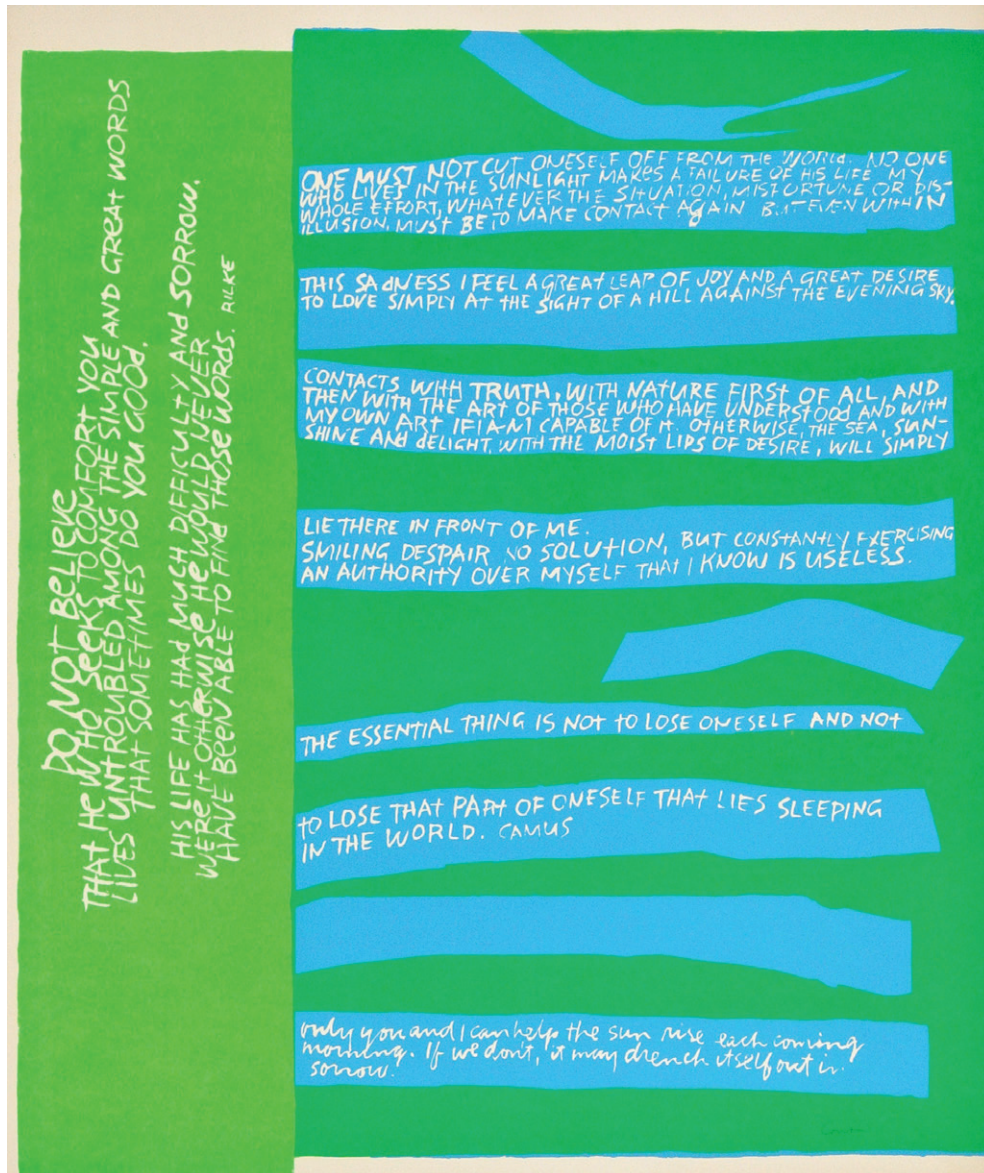 DO NOT BELIEVE
THAT HE WHO SEEKS TO COMFORT YOU
LIVES UNTROUBLED AMONG THE SIMPLE AND GREAT WORDS
THAT SOMETIMES DO YOU GOOD.
HIS LIFE HAS HAD MUCH DIFFICULTY AND SORROW.
WERE IT OTHERWISE HE WOULD NEVER
HAVE BEEN ABLE TO FIND THOSE WORDS. RILKE
ONE MUST NOT CUT ONESELF OFF FROM THE WORLD. NO ONE
WHO LIVES IN THE SUNLIGHT MAKES A FAILURE OF HIS LIFE MY
WHOLE EFFORT, WHATEVER THE SITUATION, MISFORTUNE OR DIS-
ILLUSION, MUST BE TO MAKE CONTACT AGAIN BUT EVEN WITHIN
THIS SADNESS I FEEL A GREAT LEAP OF JOY AND A GREAT DESIRE
TO LOVE SIMPLY AT THE SIGHT OF A HILL AGAINST THE EVENING SKY.
CONTACTS WITH TRUTH, WITH NATURE FIRST OF ALL, AND
THEN WITH THE ART OF THOSE WHO HAVE UNDERSTOOD AND WITH
MY OWN ART IF I AM CAPABLE OF IT. OTHERWISE, THE SEA, SUN-
SHINE AND DELIGHT, WITH THE MOIST LIPS OF DESIRE, WILL SIMPLY
LIE THERE IN FRONT OF ME.
SMILING DESPAIR NO SOLUTION, BUT CONSTANTLY EXERCISING
AN AUTHORITY OVER MYSELF THAT I KNOW IS USELESS.
THE ESSENTIAL THING IS NOT TO LOSE ONESELF AND NOT
TO LOSE THAT PART OF ONESELF THAT LIES SLEEPING
IN THE WORLD. CAMUS
only you and I can help the sun rise each coming
morning. If we don't, it may drench itself out in
sorrow.